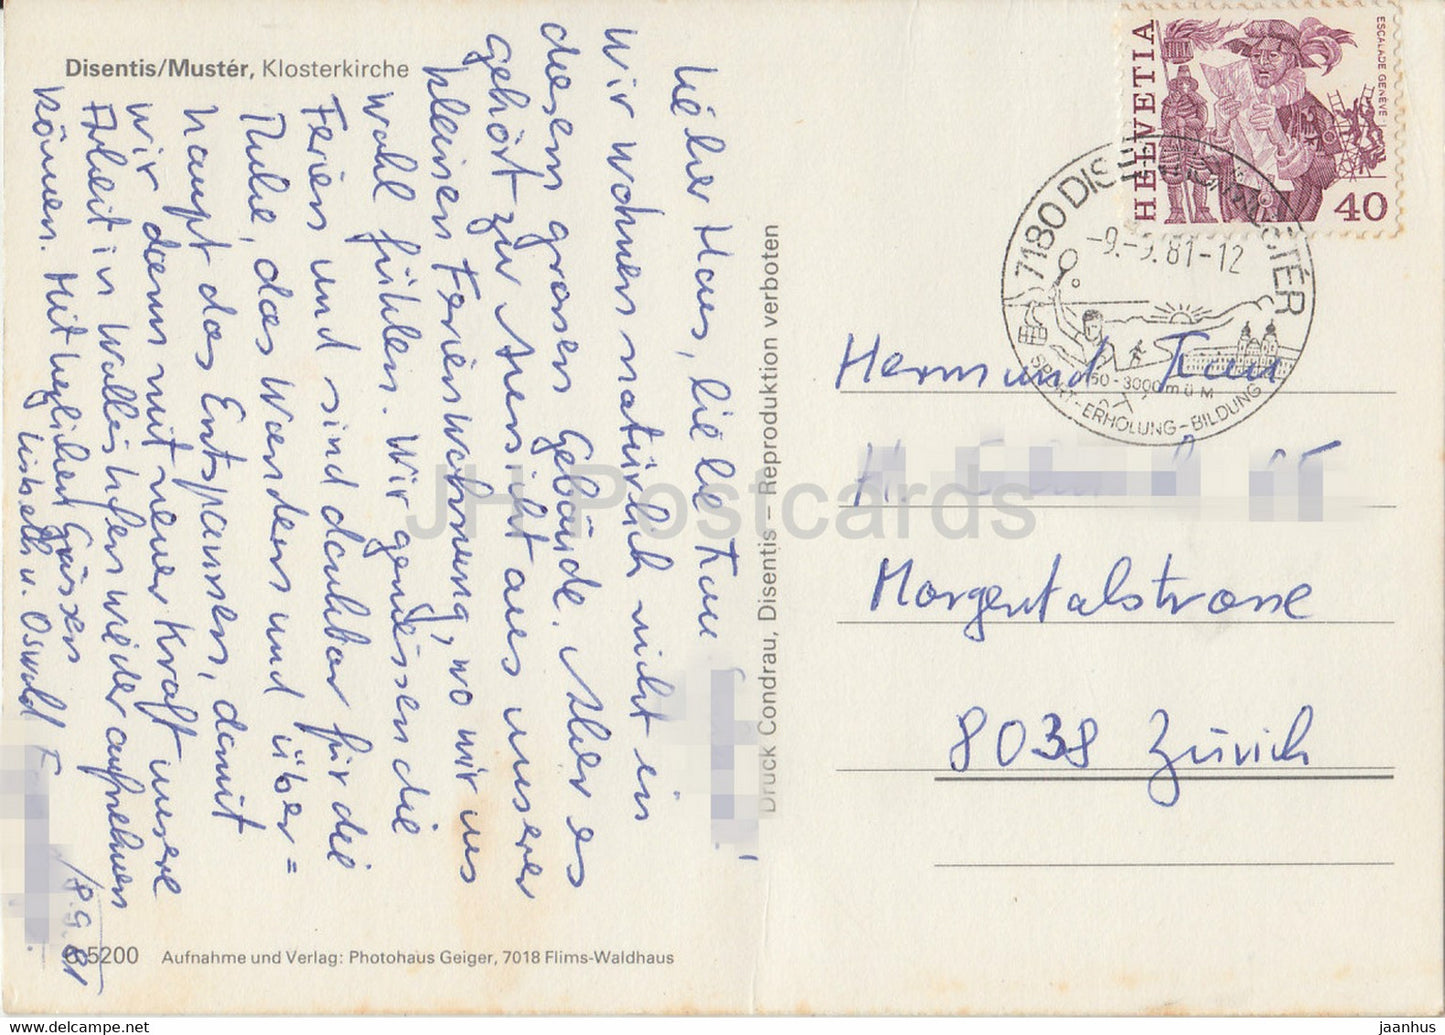 Disentis/Mustér, Klosterkirche
Lieber Hans, liebe Frau
wir wohnen natürlich nicht in
diesem grossen Gebäude. Aber es
gehört zur Aussicht aus unserer
kleinen Ferienwohnung, wo wir uns
wohl fühlen. Wir geniessen die
Ferien und sind dankbar für die
Ruhe, das Wandern und über=
haupt das Entspannen, damit
wir dann mit neuer Kraft unsere
Arbeit in Wallishofen wieder aufnehmen
können. Mit herzlichen Grüssen
Lisbeth u. Oswald
/8.9.81
5200 Aufnahme und Verlag: Photohaus Geiger, 7018 Flims-Waldhaus
Druck Condrau, Disentis – Reproduktion verboten
HELVETIA
ESCALADE GENÈVE
40
7180 DISENTIS/MUSTÉR
-9.-9.81-12
1150-3000 m ü M
SPORT-ERHOLUNG-BILDUNG
Herrn und Frau
H.
Morgentalstrasse
8038 Zürich
JH Postcards
https://www.hippostcard.com/store/jaan
jaanhusc.com